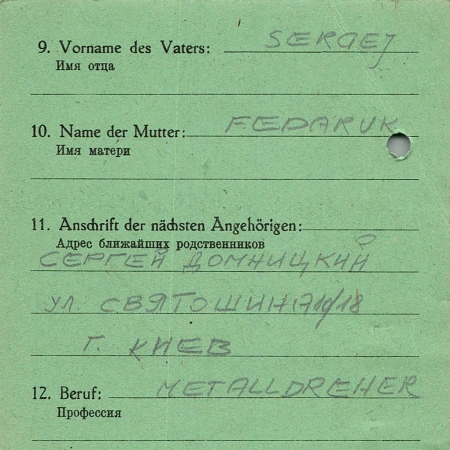 9. Vorname des Vaters: SERGEJ
Имя отца
10. Name der Mutter: FEDARUK
Имя матери
11. Anschrift der nächsten Angehörigen:
Адрес ближайших родственников
СЕРГЕЙ ДОМНИЦКИЙ
ул. СВЯТОШИНА
Г. КИЕВ
12. Beruf: METALLDREHER
Профессия